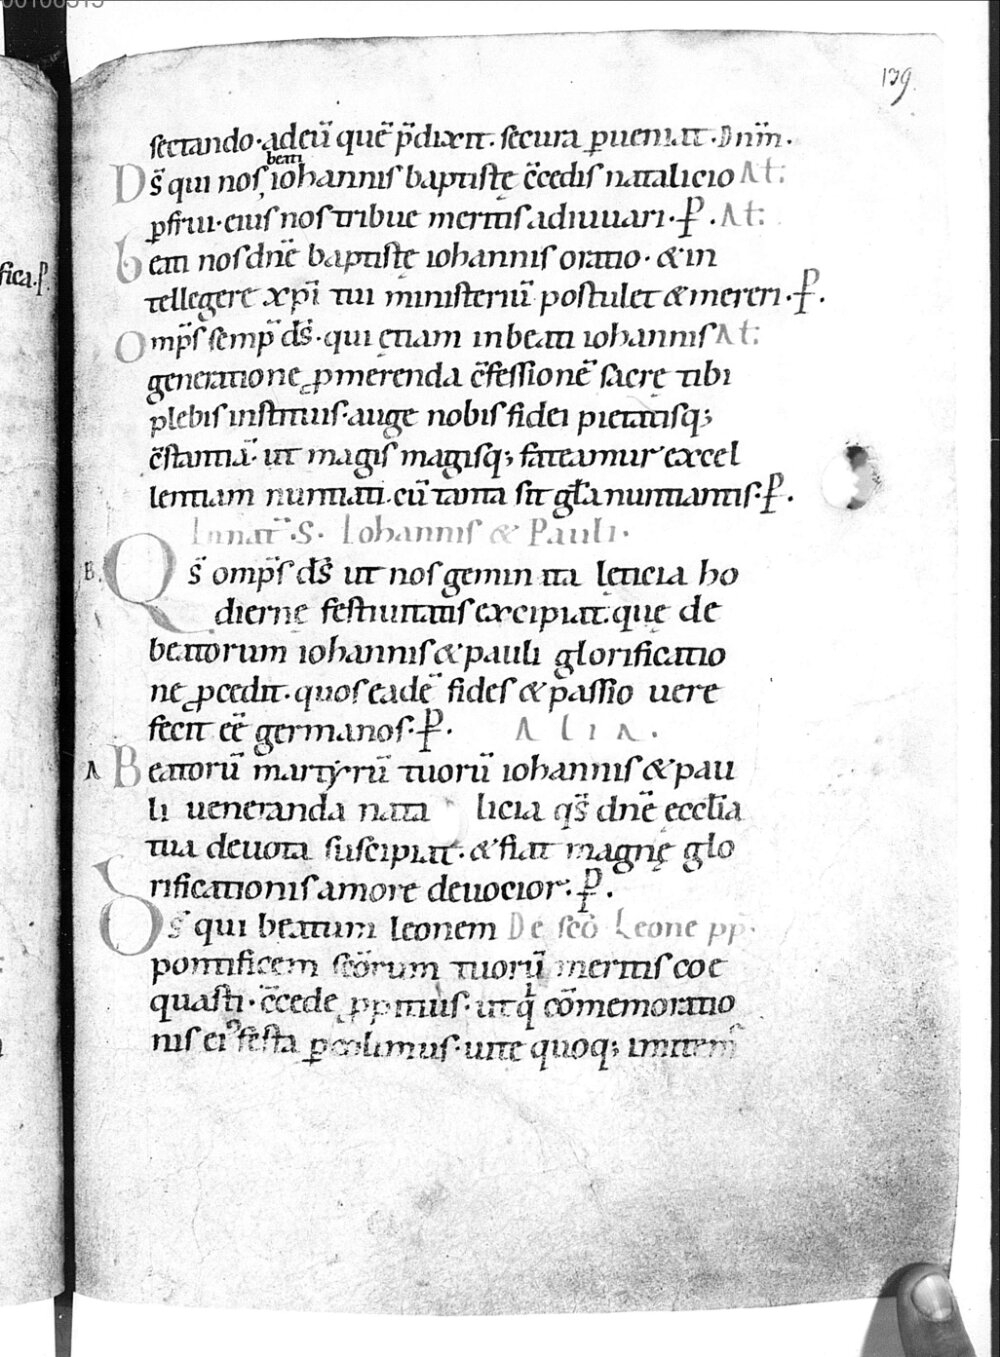 139
sectando·adeũ quẽ p̃dixit. secura ꝑueniat·Dnm̃.
beati
Ds̃ qui nos, iohannis baptistę c̃cedis natalicio At:
ꝑfrui·eius nos tribue meritis adiuuari·P. At:
beati nos dnẽ baptistę iohannis oratio·& in
tellegere xp̃i tui ministeriũ postulet & mereri·P.
Omp̃s semp̃ ds̃·qui etiam in beati iohannis At:
generatione ꝓmerenda c̃fessionẽ sacrę tibi
plebis instituis·auge nobis fidei pietatisq;
c̃stantiã·ut magis magisq; fateamur excel
lentiam nuntiati. cũ tanta sit gl̃a nuntiantis·P.
In nat̃·S· Iohannis & Pauli·
B. Qs̃ omp̃s ds̃ ut nos gemin ata lęticia ho
diernę festiuitatis excipiat. quę de
beatorum iohannis & pauli glorificatio
ne ꝓcedit·quos eadẽ fides & passio uere
fecit eẽ germanos·P. ALIA.
A Beatorũ martyrũ tuorũ iohannis & pau
li ueneranda nata licia qs̃ dnẽ eccl̃ia
tua deuota suscipiat·& fiat magnę glo
rificationis amore deuocior:P.
Ds̃ qui beatum leonem De sc̃o Leone pp̃·
pontificem sc̃orum tuorũ meritis coe
quasti·c̃cede ꝓpitius·ut q̇ cõmemoratio
nis eiꝰ festa ꝑcolimus·uite quoq; imitem̃